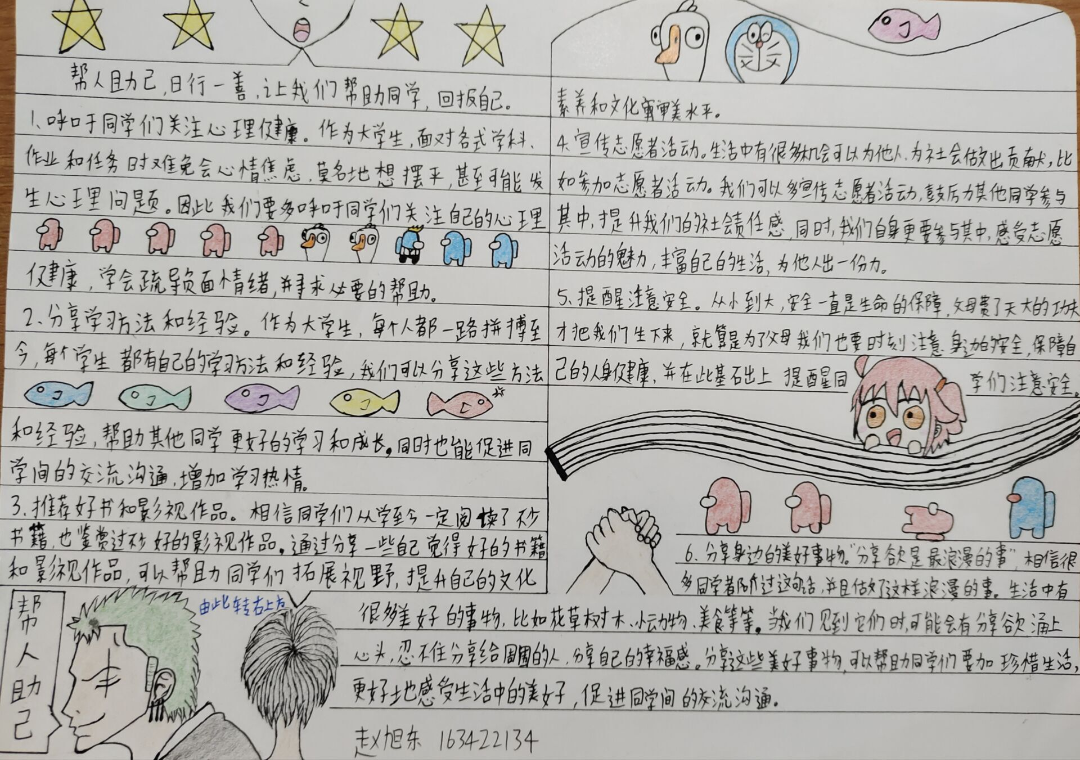 帮人助己,日行一善,让我们帮助同学,回报自己。
1.呼吁同学们关注心理健康。作为大学生,面对各式学科、
作业和任务时难免会心情焦虑,莫名地想摆平,甚至可能发
生心理问题。因此我们要多呼吁同学们关注自己的心理
健康,学会疏导负面情绪,并寻求必要的帮助。
2.分享学习方法和经验。作为大学生,每个人都一路拼搏至
今,每个学生都有自己的学习方法和经验,我们可以分享这些方法
和经验,帮助其他同学更好的学习和成长。同时也能促进同
学间的交流沟通,增加学习热情。
3.推荐好书和影视作品。相信同学们从学至今一定阅读了不少
书籍,也鉴赏过不少好的影视作品。通过分享一些自己觉得好的书籍
和影视作品,可以帮助同学们拓展视野,提升自己的文化
由此转右上方
素养和文化审美水平。
4.宣传志愿者活动。生活中有很多机会可以为他人、为社会做出贡献,比
如参加志愿者活动。我们可以多宣传志愿者活动,鼓励其他同学参与
其中,提升我们的社会责任感,同时,我们自身更要参与其中,感受志愿
活动的魅力,丰富自己的生活,为他人出一份力。
5.提醒注意安全。从小到大,安全一直是生命的保障,父母费了天大的功夫
才把我们生下来,就算是为了父母我们也要时刻注意身边的安全,保障自
己的人身健康,并在此基础上提醒同学们注意安全。
6.分享身边的美好事物。“分享欲是最浪漫的事”相信很
多同学都听过这句话,并且做了这样浪漫的事。生活中有
很多美好的事物,比如花草树木、小动物、美食等等。当我们见到它们时,可能会有分享欲涌上
心头,忍不住分享给周围的人,分享自己的幸福感。分享这些美好事物,可以帮助同学们要加珍惜生活,
更好地感受生活中的美好,促进同学间的交流沟通。
帮人助己
赵旭东 163422134